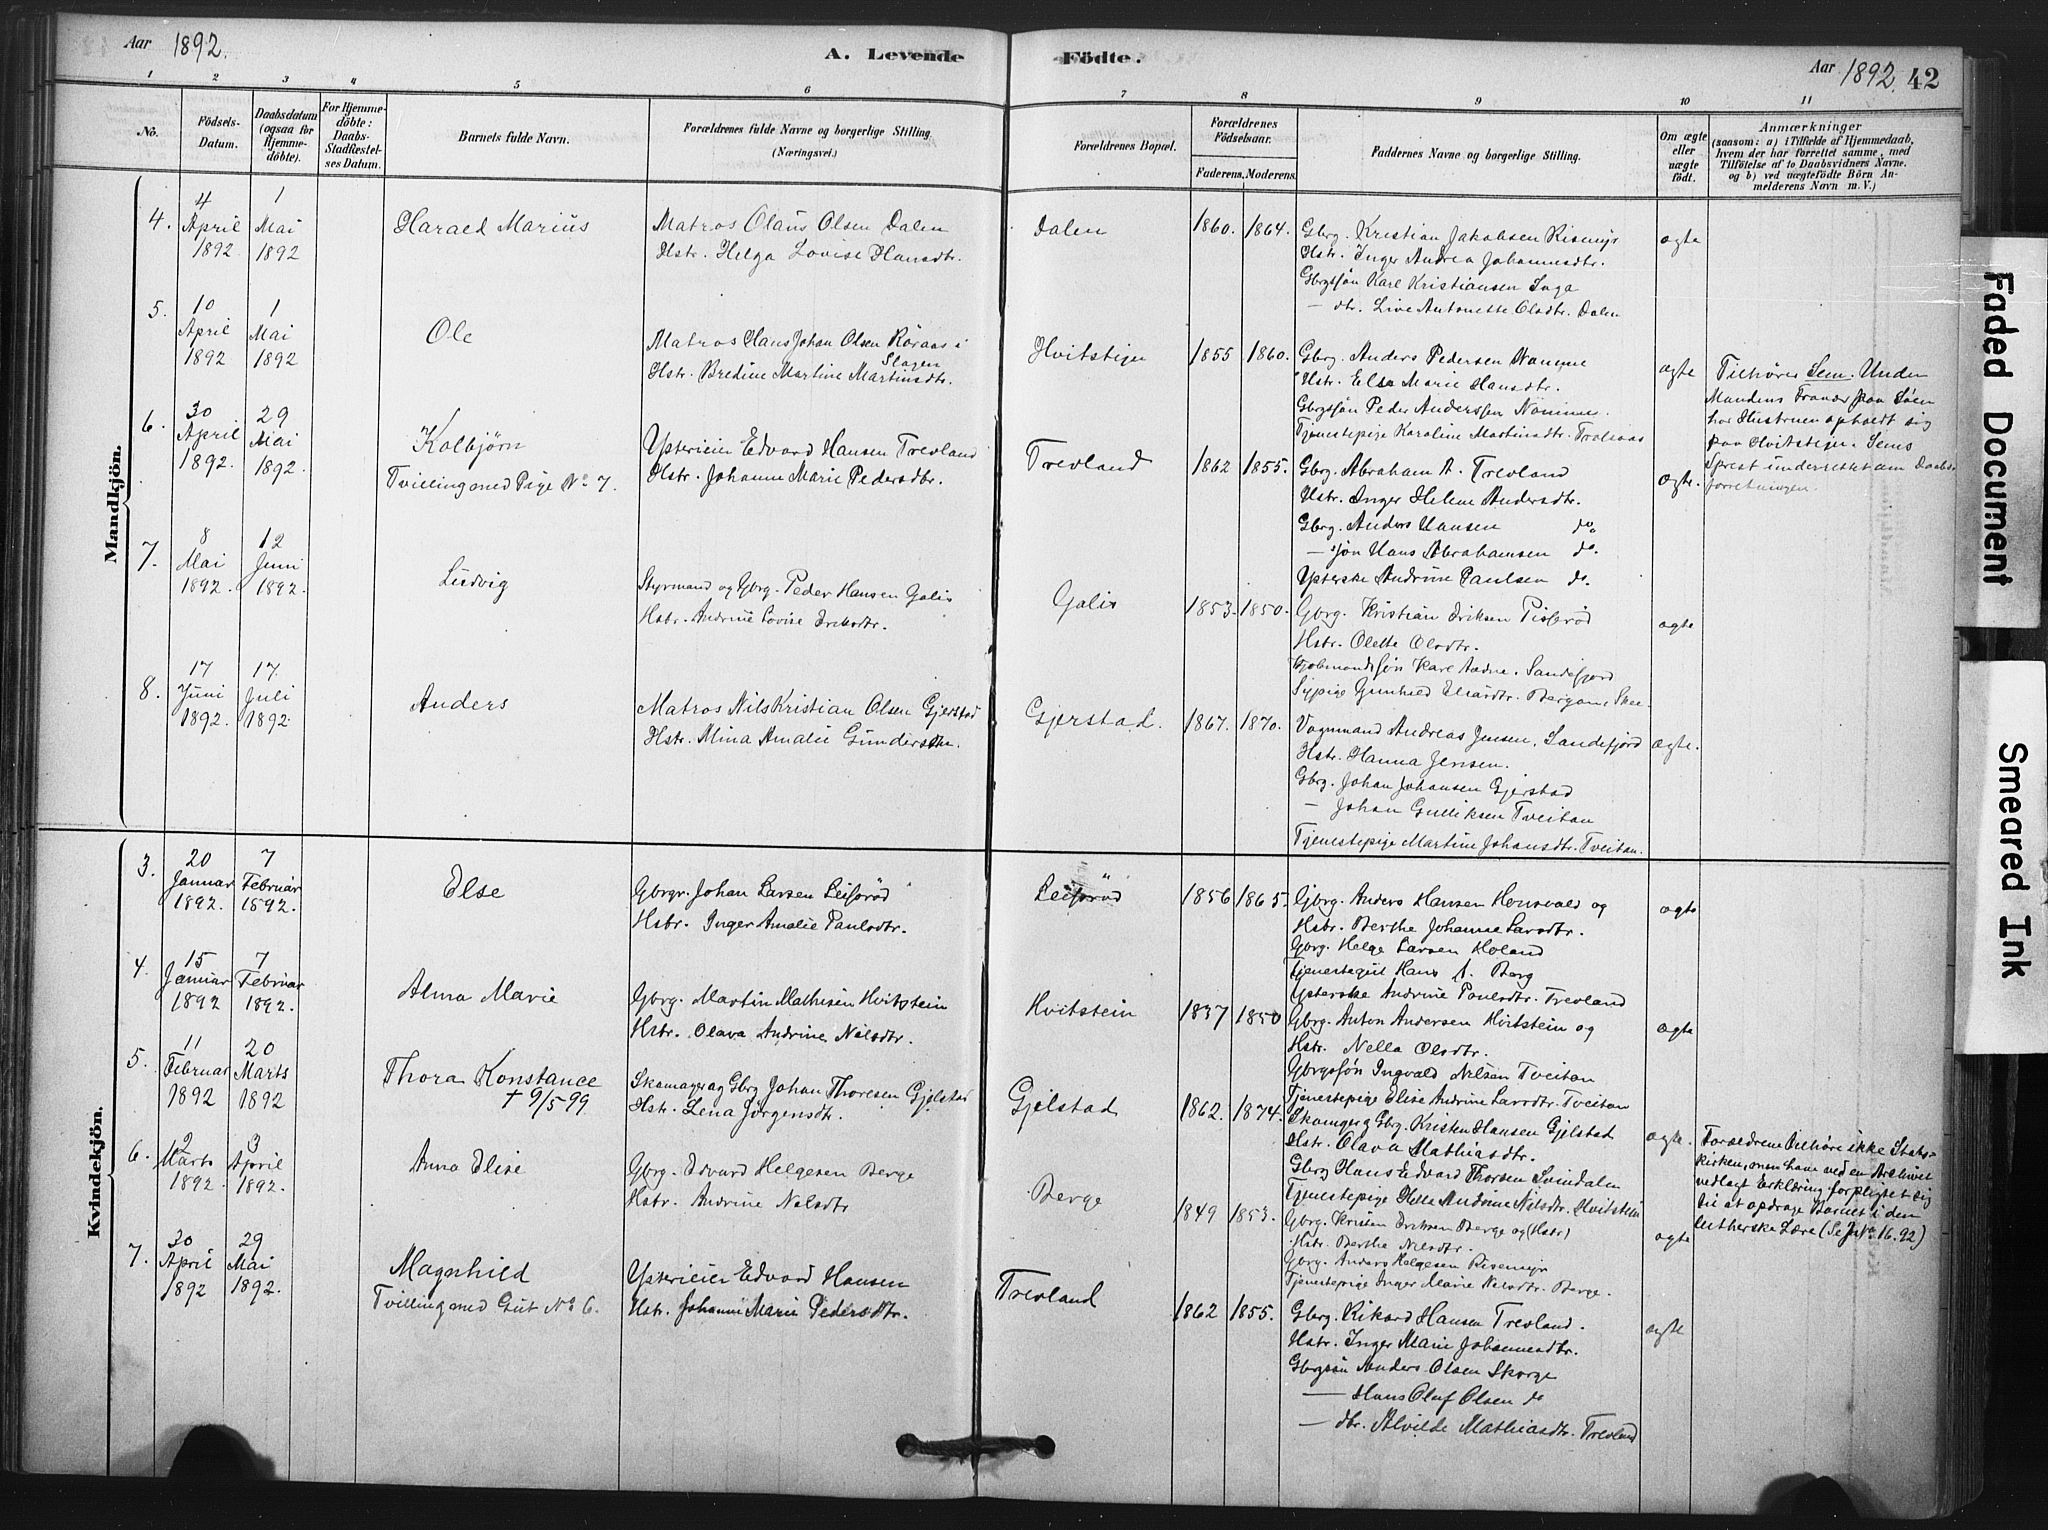 Aar 1892.
A. Levende Födte.
Aar 1892. 42
1 2 3 4 5 6 7 8 9 10 11
No.
Födsels-Datum.
Daabsdatum (ogsaa for Hjemme-döbte).
For Hjemme-döbte: Daabs-Stadfæstel-ses Datum.
Barnets fulde Navn.
Forældrenes fulde Navne og borgerlige Stilling.
(Næringsvei.)
Forældrenes Bopæl.
Forældrenes Födselsaar.
Faderens. Moderens.
Faddernes Navne og borgerlige Stilling.
Om ægte eller uægte födt.
Anmærkninger
(saasom: a) i Tilfælde af Hjemmedaab,
hvem der har forrettet samme, med
Tilföielse af to Daabsvidners Navne.
og b) ved uægtefödte Börn An-
melderens Navn m. V.)
Mandkjön.
4. 4 April 1892 1 Mai 1892
Harald Marius
Matros Olaus Olsen Dalen
Hstr. Helga Lovise Hansdtr.
Dalen
1860. 1864.
Gbrg. Kristian Jakobsen Risemyr
Hstr. Inger Andrea Johannesdtr.
Gbrgsføn Karl Kristiansen
— dtr. Live Antonette Olsdtr. Dalen
ægte
5. 10 April 1892 1 Mai 1892
Ole
Matros Hans Johan Olsen Röraas i Slagen
Hstr. Bredine Martine Martinsdtr.
Hvitstign
1855 1860.
Gbrg. Anders Pedersen
Hstr. Else Marie Hansdtr.
Gbrgsføn Peder Anderssen
Tjenestepige Karoline Martinsdtr.
ægte
Tilhører Sem. Under
Mandens Fravær paa Søen
har Hustruen opholdt sig
paa Hvitstign. Sems
Sprest underrettet om Daabs-
forretningen.
6. 30 April 1892. 29 Mai 1892.
Kolbjørn
Tvilling med Pige No 7.
Ysterieier Edvard Hansen Trevland
Hstr. Johanne Marie Pedersdtr.
Trevland
1862 1855.
Gbrg. Abraham A. Trevland
Hstr. Inger Helene Andersdtr.
Gbrg. Anders Hansen do.
— søn Hans Abrahamsen do.
Ysterske Andrine Paulsen do.
ægte.
7. 8 Mai 1892. 12 Juni 1892.
Ludvig
Styrmand og Gbrg. Peder Hansen Galis
Hstr. Andrine Lovise Eriksdtr.
Galis
1853. 1850.
Gbrg. Kristian Eriksen
Hstr. Olette Olsdtr.
Kjøbmandssøn Karl Aadne, Sandefjord
Sypige Gunhild
ægte
8. 17 Juni 1892. 17. Juli 1892.
Anders
Matros Nils Kristian Olsen Gjerstad
Hstr. Mina Amalie Gundersdtr.
Gjerstad.
1867. 1870.
Vognmand Andreas Jensen, Sandefjord
Hstr. Hanna Jensen.
Gbrg. Johan Johansen Gjerstad
— Johan Gulliksen Tveitan
Tjenestepige Martine Johansdtr. Tveitan.
ægte.
Kvindekjön.
3. 20 Januar 1892. 7 Februar 1892.
Else
Gbrgr. Johan Larsen Leiserød
Hstr. Inger Amalie Paulsdtr.
Leiserød
1856 1865.
Gbrg. Anders Hansen Honsvald og
Hstr. Berthe Johanne Larsdtr.
Gbrg. Helge Larsen Holand
Tjenestegut Hans A. Berg
Ysterske Andrine Paulsdtr. Trevland
ægte
4. 15 Januar 1892 7 Februar 1892.
Alma Marie
Gbrg. Martin Mathisen Hvitstein
Hstr. Olava Andrine Nilsdtr.
Hvitstein
1837 1850
Gbrg. Anton Andersen Hvitstein og
Hstr. Nella Olsdtr.
Gbrgssøn Ingvald Nilsen Tveitan
Tjenestepige Elise Andrine Larsdtr. Tveitan
ægte
5. 11 Februar 1892 20 Marts 1892
Thora Konstance
† 9/5 99
Skomager og Gbrg Johan Thoresen Gjelstad
Hstr. Lena Jørgensdtr.
Gjelstad
1862. 1874.
Skomg og Gbrg. Kristen Hansen Gjelstad
Hstr. Olava Mathiasdtr.
Gbrg Hans Edvard Thorsen Svindalen
Tjenestepige Helle Andrine Nilsdtr. Hvitstein
ægte.
6. 2 Marts 1892. 3 April 1892.
Anna Elise
Gbrg. Edvard Helgesen Berge
Hstr. Andrine Nilsdtr
Berge
1849 1853.
Gbrg. Kristen Eriksen Berge og (Hstr)
Hstr. Berthe Nilsdtr.
Gbrg. Anders Helgesen Risemyr
Tjenestepige Inger Marie Nilsdtr. Berge.
ægte
Forældrene tilhøre ikke Stats-
kirken, men have ved en Archivet
vedlagt Erklæring forpligtet sig
til at opdrage Barnet i den
lutherske Lære (Se JNo 16.92)
7. 30 April 1892 29 Mai 1892.
Magnhild
Tvilling med Gut No 6.
Ysterieier Edvard Hansen
Hstr. Johanne Marie Pedersdtr.
Trevland
1862 1855.
Gbrg. Rikard Hansen Trevland.
Hstr. Inger Marie Johannesdtr.
Gbrgsøn Anders Olsen Skorge
— Hans Oluf Olsen do
— dtr. Alvilde Mathiasdtr. Trevland
ægte
Faded Document
Smeared Ink